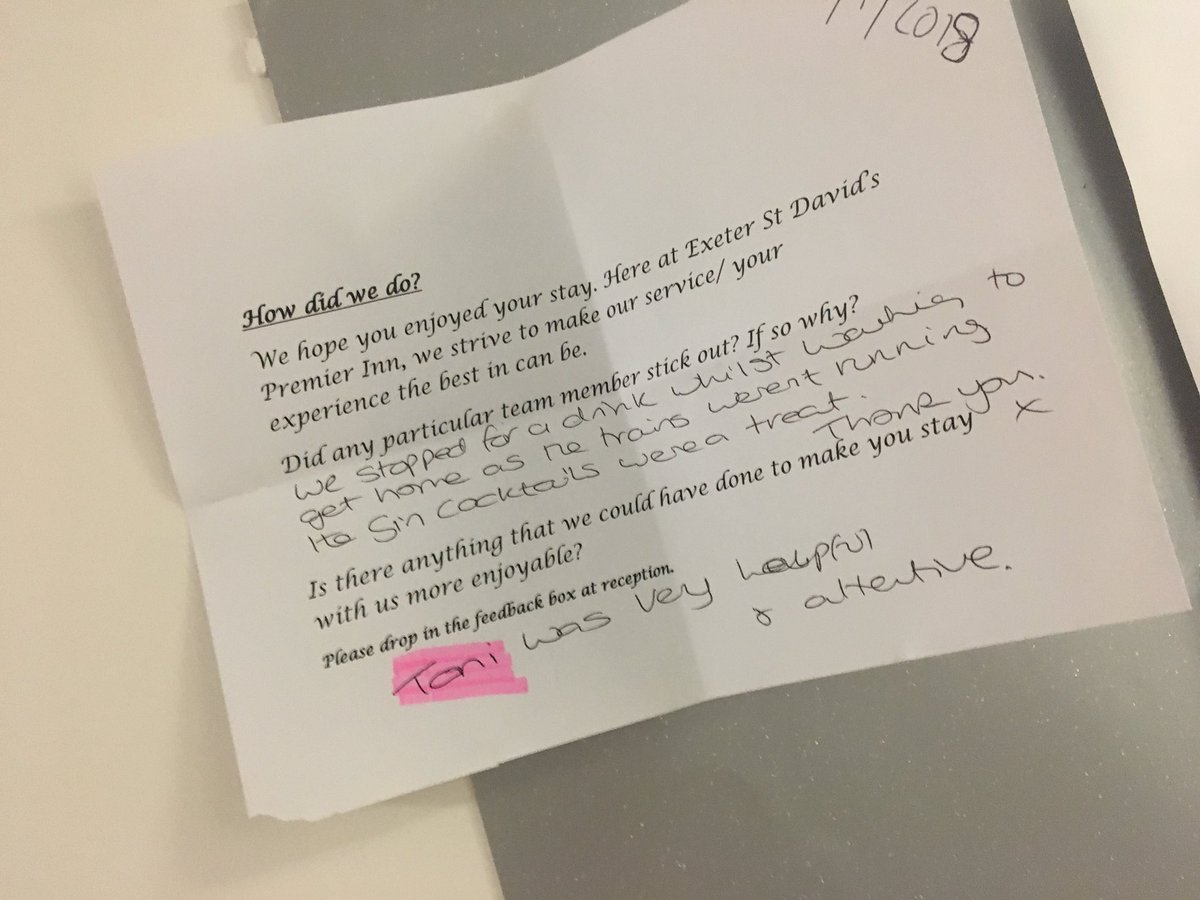 /1/2018
How did we do?
We hope you enjoyed your stay. Here at Exeter St David's
Premier Inn, we strive to make our service/ your
experience the best in can be.
Did any particular team member stick out? If so why?
we stopped for a drink whilst waiting to
get home as the trains werent running
the Gin Cocktails were a treat.
Thank you.
x
Is there anything that we could have done to make you stay
with us more enjoyable?
Please drop in the feedback box at reception.
Toni was very helpful
& attentive.